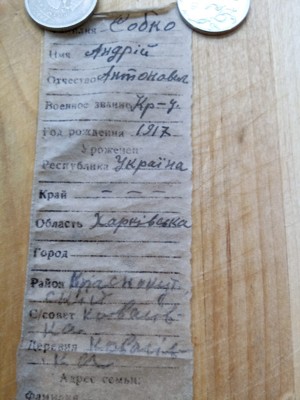 Фамилия Собко
Имя Андрій
Отчество Антонович
Военное звание Кр-ц
Год рождения 1917
Уроженец
Республика Україна
Край – – – –
Область Харківська
Город
Район Краснокут
ский
С/совет Ковалів
ка
Деревня Ковалів
ка
Адрес семьи:
Фамилия